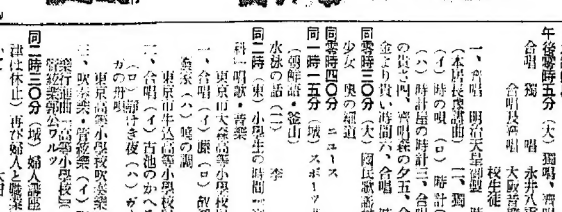 午後零時五分（大）獨唱、齊唱
合唱 獨 唱 永井八重
合唱及齊唱 大阪音樂
校生徒
一、齊唱 明治天皇御製
（本居長豫譜曲）二、獨
（イ）時の唄（ロ）時計
（ハ）時計屋の時計三、合唱
の貴さ四、齊唱森の夕五、合
金より貴い時間六、合唱
同零時三〇分（大）國民歌謠
少女 奧の細道
同零時四〇分 ニユース
同一時一五分（城）スポーツ
（朝鮮語・釜山）
水泳の話（二） 李
同二時（東）小學生の時間
科）唱歌・音樂
東京市大森高等小學校
一、合唱（イ）願（ロ）故郷
（ハ）曉の調
東京市牛込高等小學校
二、合唱（イ）古池のかへる
（ロ）靜けき夜（ハ）ガ
ガの舟唄
東京高等小學校吹奏樂
三、吹奏樂・管絃樂（イ）
樂行進曲「高等小學校」
管絃樂郭公ワルツ
同二時三〇分（城）婦人講座
津は休止）再び婦人と職業